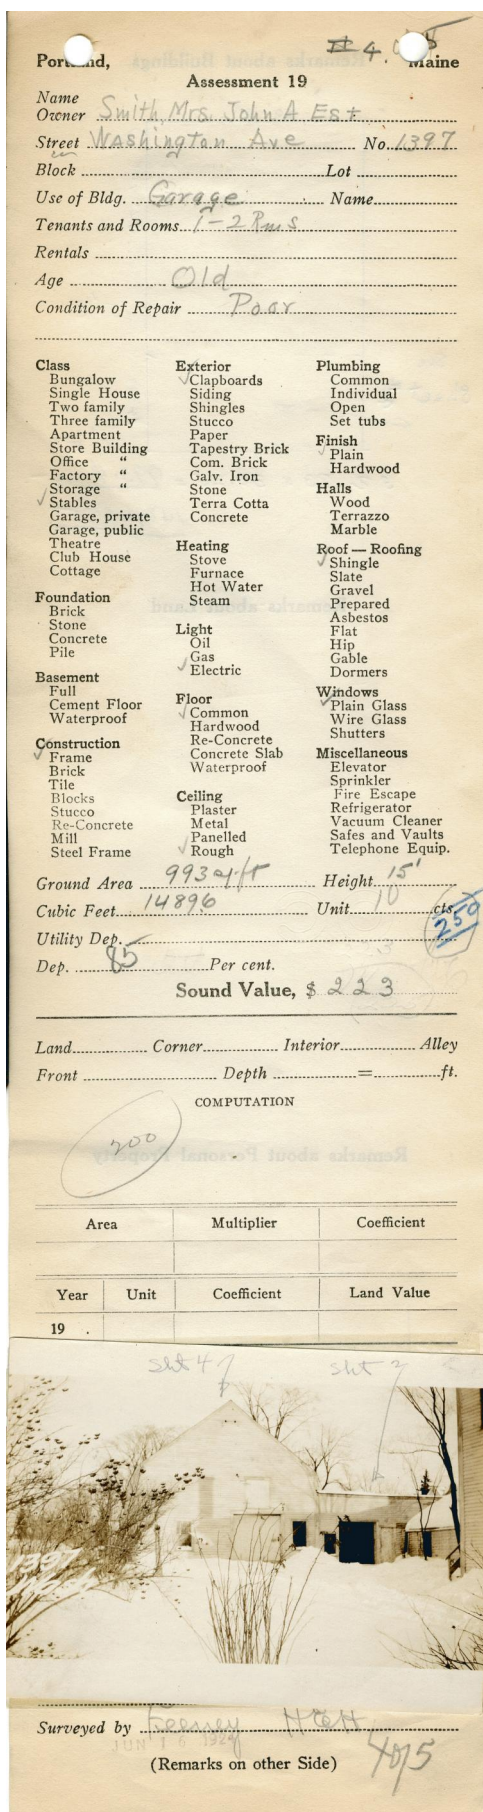 Portland, # 4. of 5 Maine
Assessment 19
Name
Owner Smith, Mrs. John A Est
Street Washington Ave No. 1397
Block Lot
Use of Bldg. Garage Name
Tenants and Rooms 1-2 Rms
Rentals
Age Old
Condition of Repair Poor
Class
Bungalow
Single House
Two family
Three family
Apartment
Store Building
Office "
Factory "
Storage "
✓ Stables
Garage, private
Garage, public
Theatre
Club House
Cottage
Foundation
Brick
Stone
Concrete
Pile
Basement
Full
Cement Floor
Waterproof
Construction
✓ Frame
Brick
Tile
Blocks
Stucco
Re-Concrete
Mill
Steel Frame
Exterior
✓ Clapboards
Siding
Shingles
Stucco
Paper
Tapestry Brick
Com. Brick
Galv. Iron
Stone
Terra Cotta
Concrete
Heating
Stove
Furnace
Hot Water
Steam
Light
Oil
Gas
✓ Electric
Floor
✓ Common
Hardwood
Re-Concrete
Concrete Slab
Waterproof
Ceiling
Plaster
Metal
Panelled
✓ Rough
Plumbing
Common
Individual
Open
Set tubs
Finish
✓ Plain
Hardwood
Halls
Wood
Terrazzo
Marble
Roof — Roofing
✓ Shingle
Slate
Gravel
Prepared
Asbestos
Flat
Hip
Gable
Dormers
Windows
✓ Plain Glass
Wire Glass
Shutters
Miscellaneous
Elevator
Sprinkler
Fire Escape
Refrigerator
Vacuum Cleaner
Safes and Vaults
Telephone Equip.
Ground Area 993 sq ft Height 15'
Cubic Feet 14896 Unit 10 cts.
250
Utility Dep.
Dep. 85 Per cent.
Sound Value, $ 223
Land Corner Interior Alley
Front Depth = ft.
COMPUTATION
200
Area Multiplier Coefficient
Year Unit Coefficient Land Value
19 .
Sht 4 Sht 2
1397
Surveyed by Feeney
JUN 16 1924
(Remarks on other Side)
4 of 5